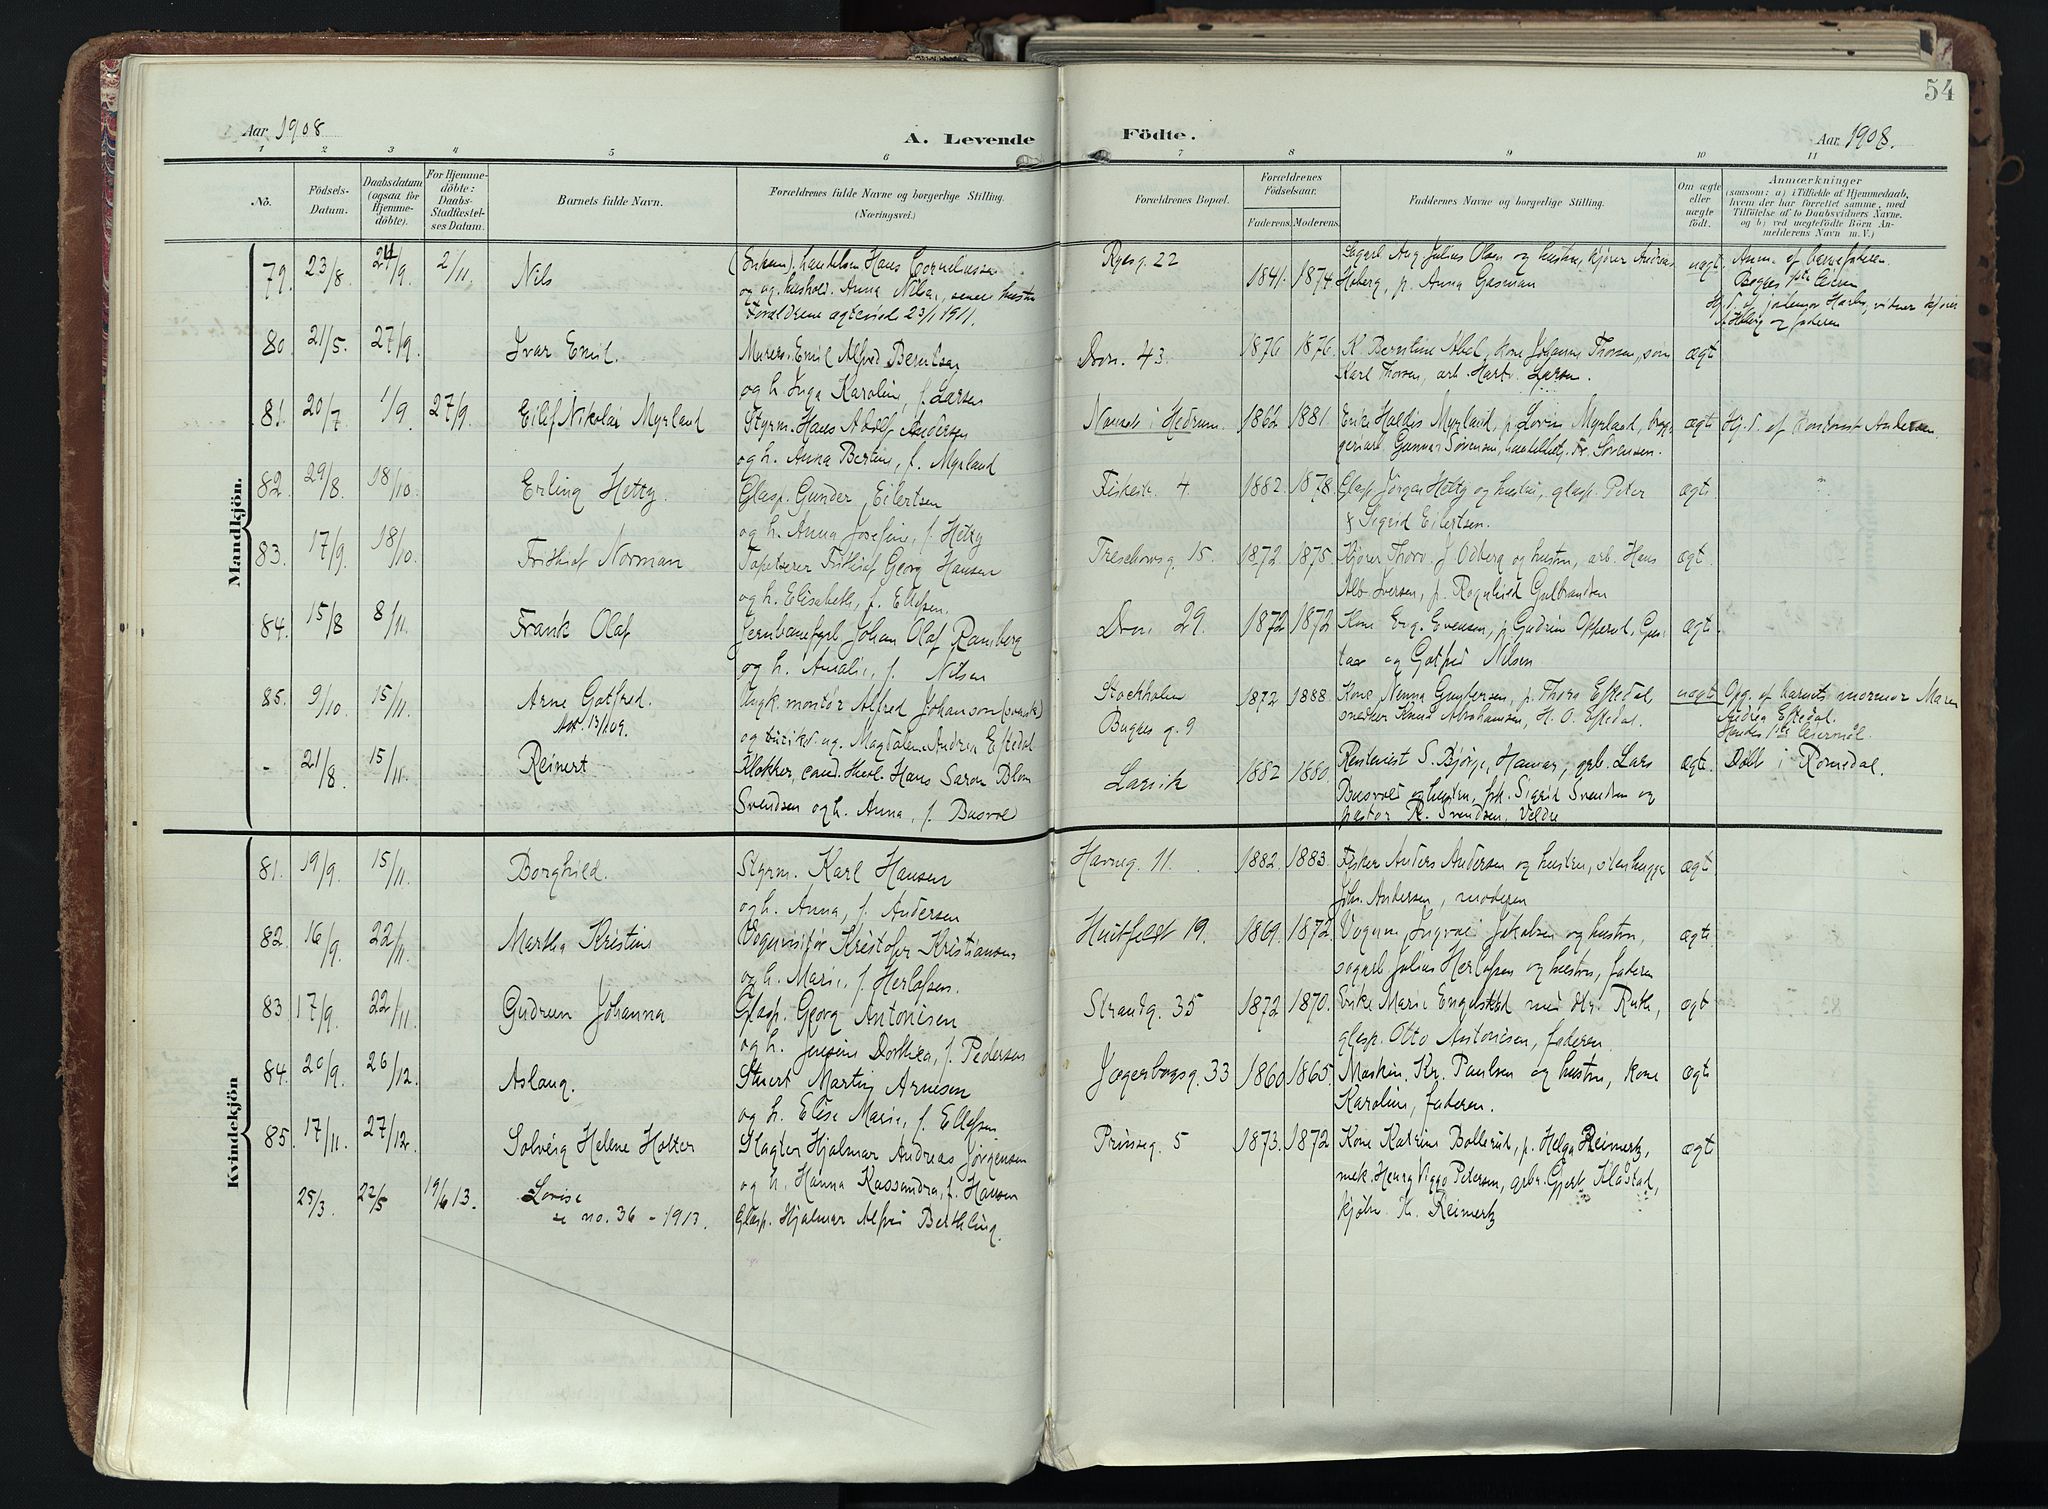 54
Aar 1908
A. Levende Födte.
Aar 1908.
1 2 3 4 5 6 7 8 9 10 11
No.
Födsels-Datum.
Daabsdatum (ogsaa for Hjemmedöbte).
For Hjemmedöbte: Daabs-Stadfæstelses Datum.
Barnets fulde Navn.
Forældrenes fulde Navne og borgerlige Stilling. (Næringsvei.)
Forældrenes Bopæl.
Forældrenes Födselsaar.
Faderens. Moderens.
Faddernes Navne og borgerlige Stilling.
Om ægte eller uægte födt.
Anmærkninger
(saasom: a) i Tilfælde af Hjemmedaab, hvem der har forrettet samme, med Tilföielse af to Daabsvidners Navne, og b) ved uægtefödte Börn Anmelderens Navn m. V.)
Mandkjön.
79. 23/8 24/9. 2/11 Nils
Hans Cornelius
og ug. hushold. Anna Nils
Forældrene ægteviet 23/1 1911.
Ryesg. 22 1841. 1874.
Julius Olsen og hustru, kjører Andreas
Høberg, p. Anna Gasman
uægt. Anm. af barnefaderen.
80. 21/5. 27/9. Ivar Emil.
Murer Emil Alfred Berntsen
og h. Inga Karoline, f. Larsen
Dron. 43. 1876 1876.
Johanne Thorsen,
Karl Thorsen, arb. Hartv. Larsen.
ægt
81. 20/7 1/9. 27/9. Eilef Nikolai Myrland
Styrm. Hans Adolf Andersen
og h. Anna Bertine, f. Myrland
i Hedrum. 1862 1881.
Enke Haldis Myrland, p. Lovise Myrland,
Gunnar Sørensen, Fr. Sørensen.
ægt Hj. d. af Andersen.
82. 29/8. 18/10. Erling Hetty
Glasp. Gunder Eilertsen
og h. Anna Josefine, f. Hetty
Fiskestr. 4 1882. 1878.
Glasp. Jørgen Hetty og hustru, glasp. Peter
& Sigrid Eilertsen.
ægt "
83. 17/9. 18/10. Frithiof Norman
Tapetserer Frithiof Georg Hansen
og h. Elisabeth, f. Ellefsen.
Treschowsg. 15. 1872. 1875.
Kjører Thorv. J. Odberg og hustru, arb. Hans
Alb. Iversen, p. Ragnhild Gulbrandsen
ægt.
84. 15/8 8/11. Frank Olaf
Jernbanefyrb. Johan Olaf Ramberg
og h. Amalie, f. Nilsen
Dron. 29. 1872 1872
Kone Evensen, p. Gudrun
og Gotfred Nilsen
ægt.
85. 9/10. 15/11. Arne Gotfred.
13/1 09.
Ungk. montør Alfred Johanson (svensk)
og ug. Magdalene Andrea Eftedal
Stockholm
Bugges g. 9 1872 1888.
Kone Nenna Gundersen, p. Thora Eftedal
snedker Knud Abrahamsen, H. O. Eftedal.
uægt Opg. af barnets mormor Maren
Andrea Eftedal.
Hendes 1ste leiermål.
- 21/8 15/11. Reinert
Klokker, cand. theol. Hans Saron Blom
Svendsen og h. Anna, f. Busvol
Larvik 1882 1880.
S. Bjørge, Hamar, arb. Lars
Busvol og hustru, frk. Sigrid Svendsen og
pastor R. Svendsen, Veldre
ægt. Døbt i Romedal.
Kvindekjön
81. 19/9. 15/11. Borghild.
Styrm. Karl Hansen
og h. Anna, f. Andersen
Havneg. 11. 1882. 1883.
Fisker Anders Andersen og hustru, stenhugger
Joh. Andersen, moderen
ægt
82. 16/9. 22/11. Martha Kristine
Vognvisitør Kristofer Kristiansen
og h. Marie, f. Herlofsen.
Huitfeldt 19. 1869. 1872.
Ingval Jakobsen og hustru,
sagarb. Julius Herlofsen og hustru, faderen
ægt.
83. 17/9. 22/11. Gudrun Johanna
Glasp. Georg Antonisen
og h. Jensine Dorthea, f. Pedersen
Strandg. 35 1872 1870.
Enke Marie Engelstad med dtr. Ruth,
glasp. Otto Antonisen, faderen.
ægt
84. 20/9. 26/12. Aslaug.
Stuert Martin Arnesen
og h. Elise Marie, f. Ellefsen
Jegerborgsg. 33 1860 1865.
Maskin. Kr. Paulsen og hustru, kone
Karoline, faderen.
ægt
85. 17/11. 27/12. Solveig Helene Holter
Slagter Hjalmar Andreas Jørgensen
og h. Hanna Kassandra, f. Hansen
Prinseg. 5 1873. 1872
Kone Katrine Bollerud, p. Helga Reimertz,
mek. Henry Viggo Petersen, Gjert Klåstad,
kjøbm. K. Reimertz
ægt
25/3. 22/5 19/6 13. Lovise
se no. 36 - 1913.
Glasp. Hjalmar Alfred Berthling.